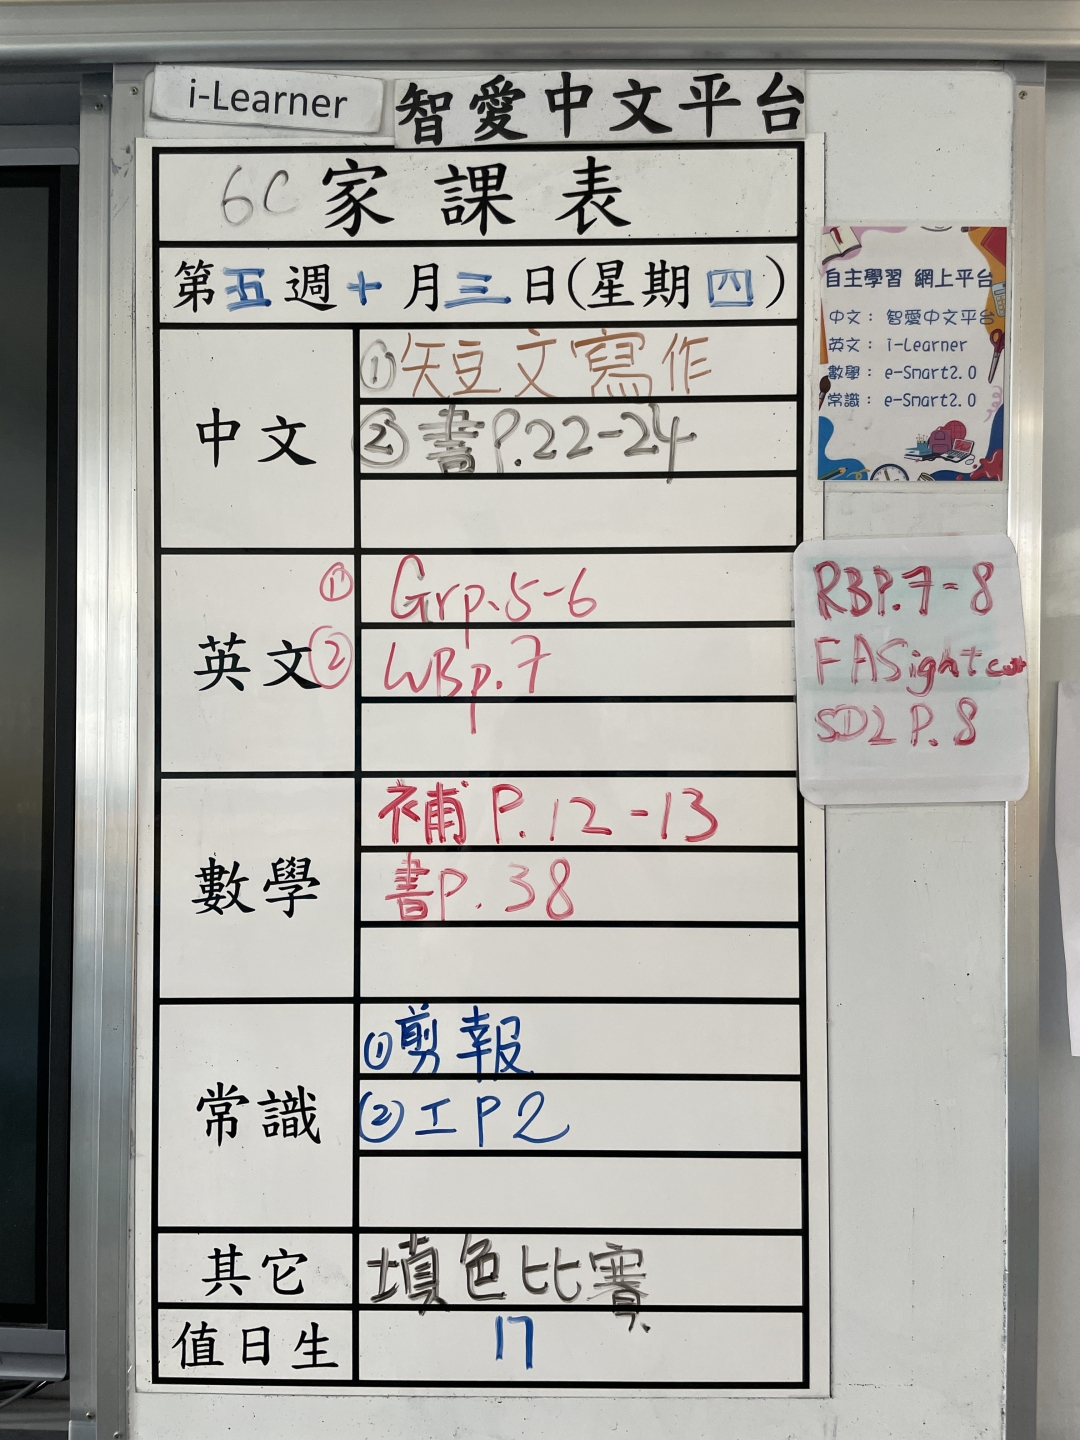 i-Learner 智愛中文平台
6C 家課表
第五週十月三日(星期四)
中文
①短文寫作
②書P.22-24
英文
① Grp.5-6
② WBp.7
數學
補P.12-13
書P.38
常識
①剪報
②工P2
其它
填色比賽
值日生
17
自主學習 網上平台
中文：智愛中文平台
英文：i-Learner
數學：e-Smart2.0
常識：e-Smart2.0
RBP.7-8
FASight
SD2 P.8